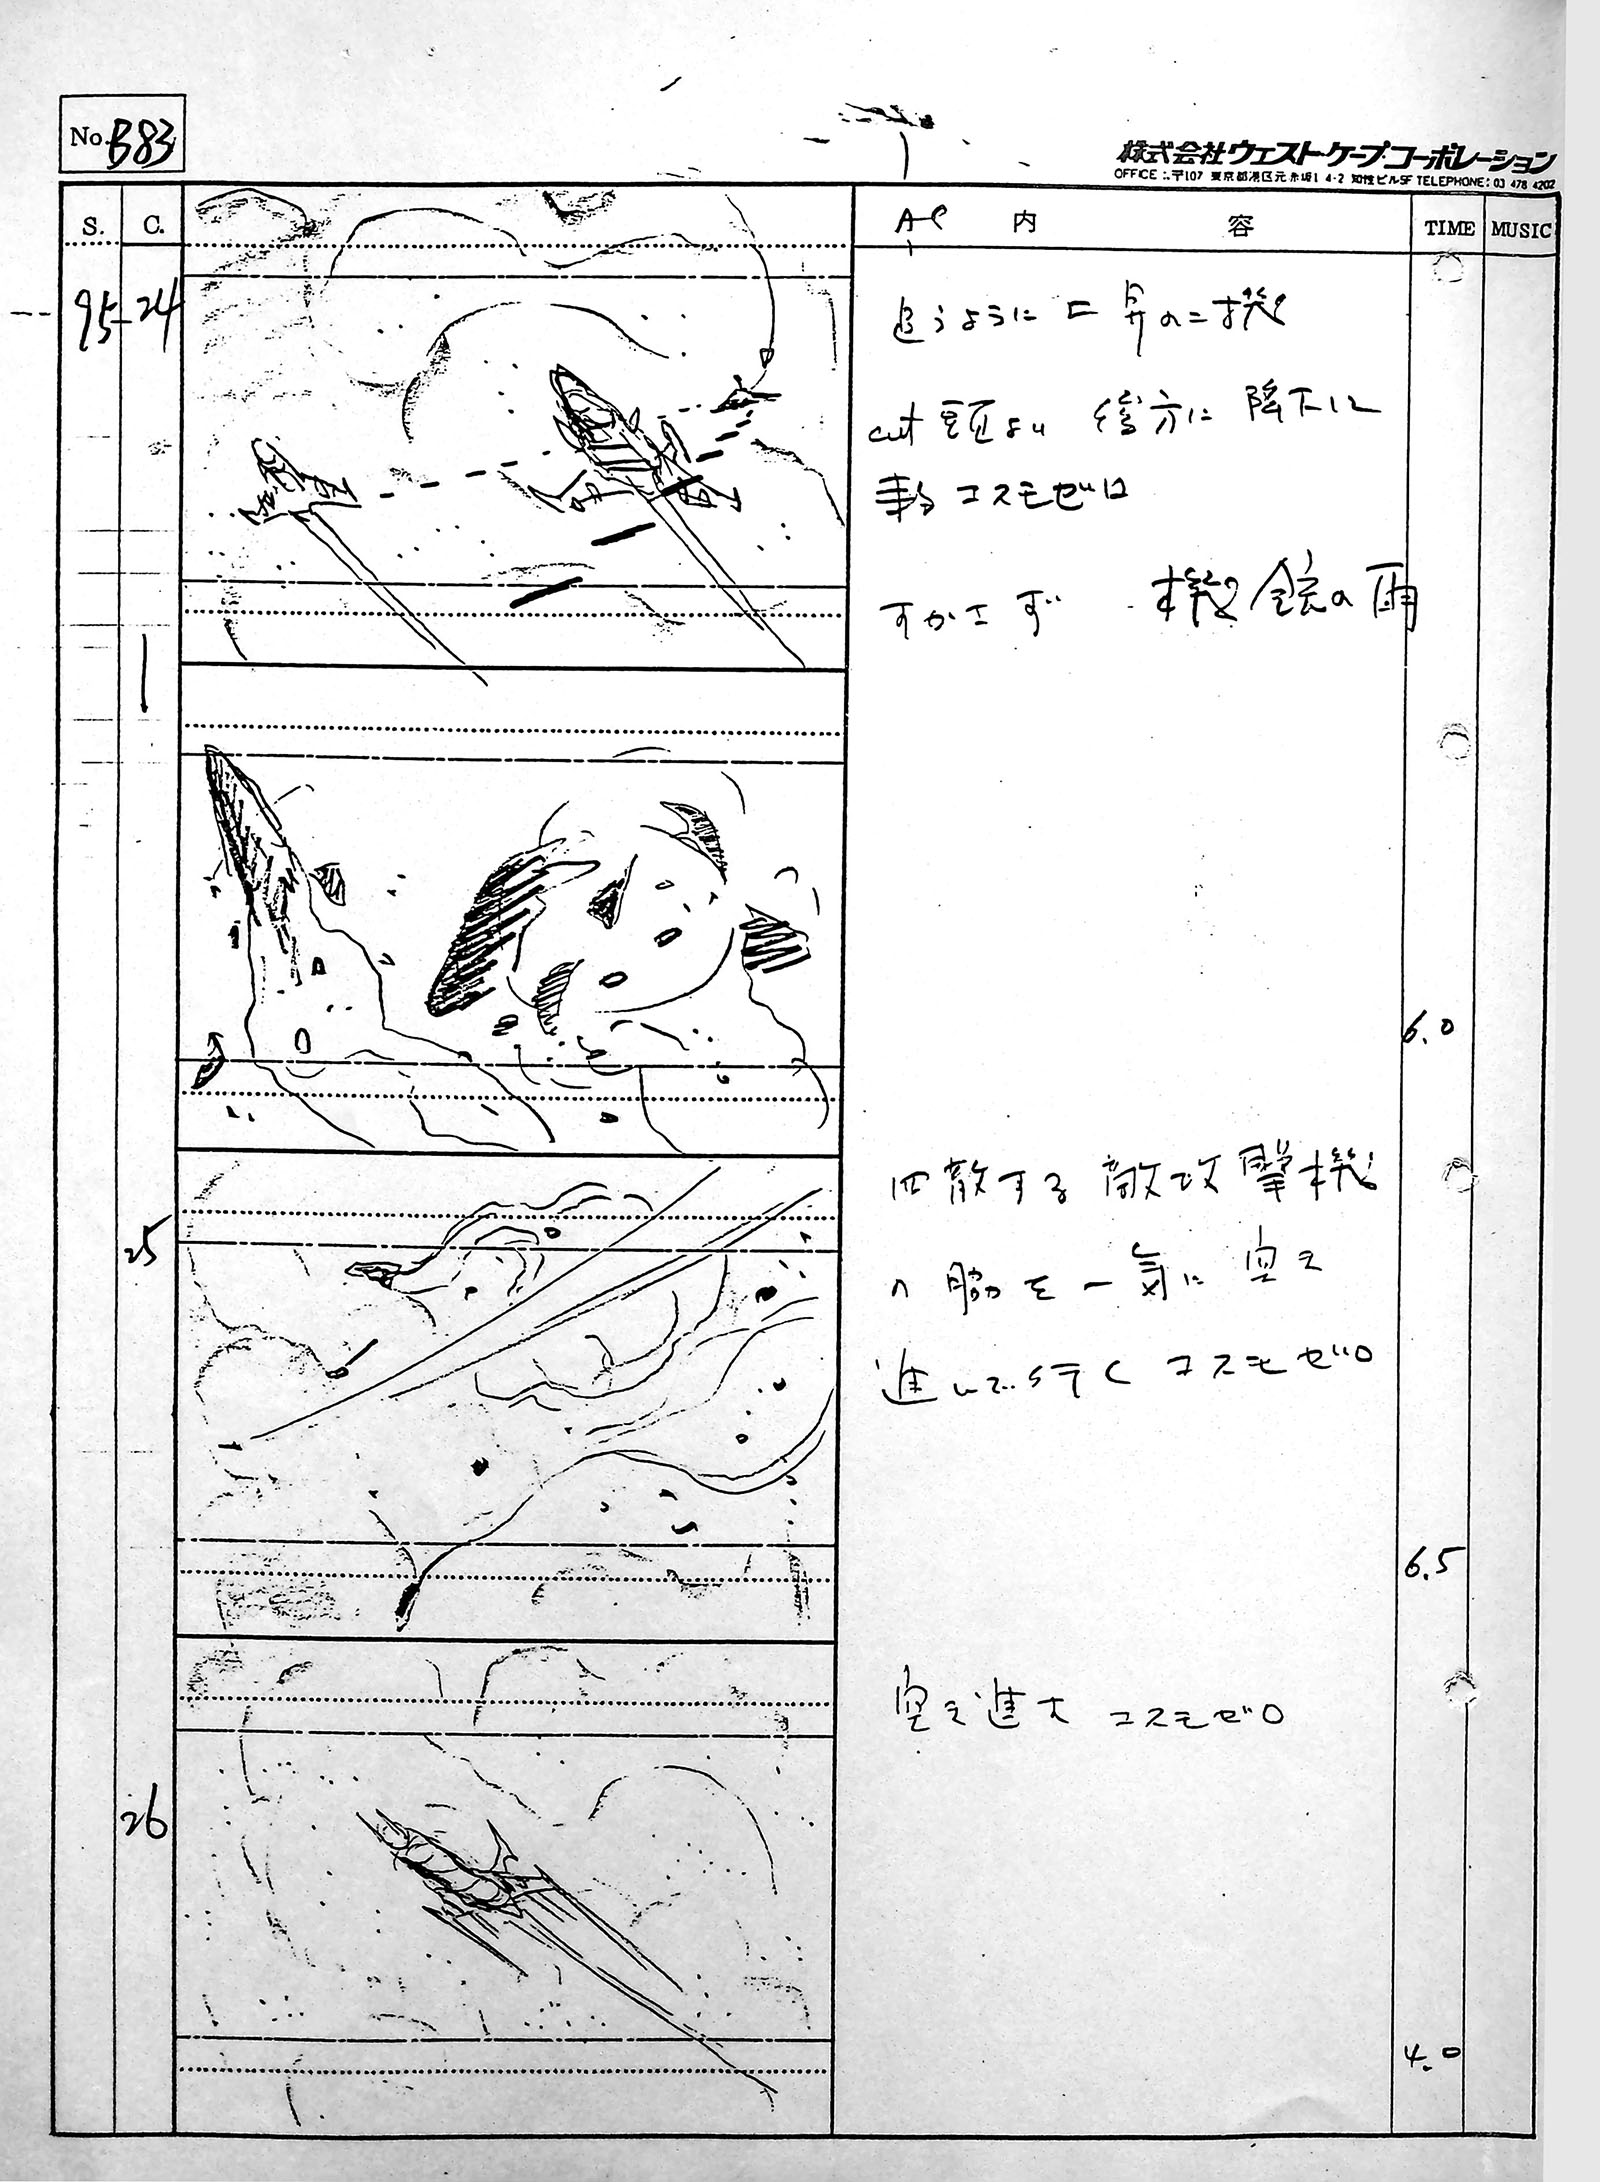 No. B83
株式会社ウェスト・ケープ・コーポレーション
OFFICE:〒107 東京都港区元赤坂1 4-2 知性ビル5F TELEPHONE: 03 478 4202
S. C. 内容 TIME MUSIC
95 24
追うように上昇の二機
cut頭より 後方に 降下に
コスモゼロ
すかさず 機銃の雨
6.0
25
四散する敵攻撃機
の脇を一気に突き
進んで行く コスモゼロ
6.5
26
突き進む コスモゼロ
4.0